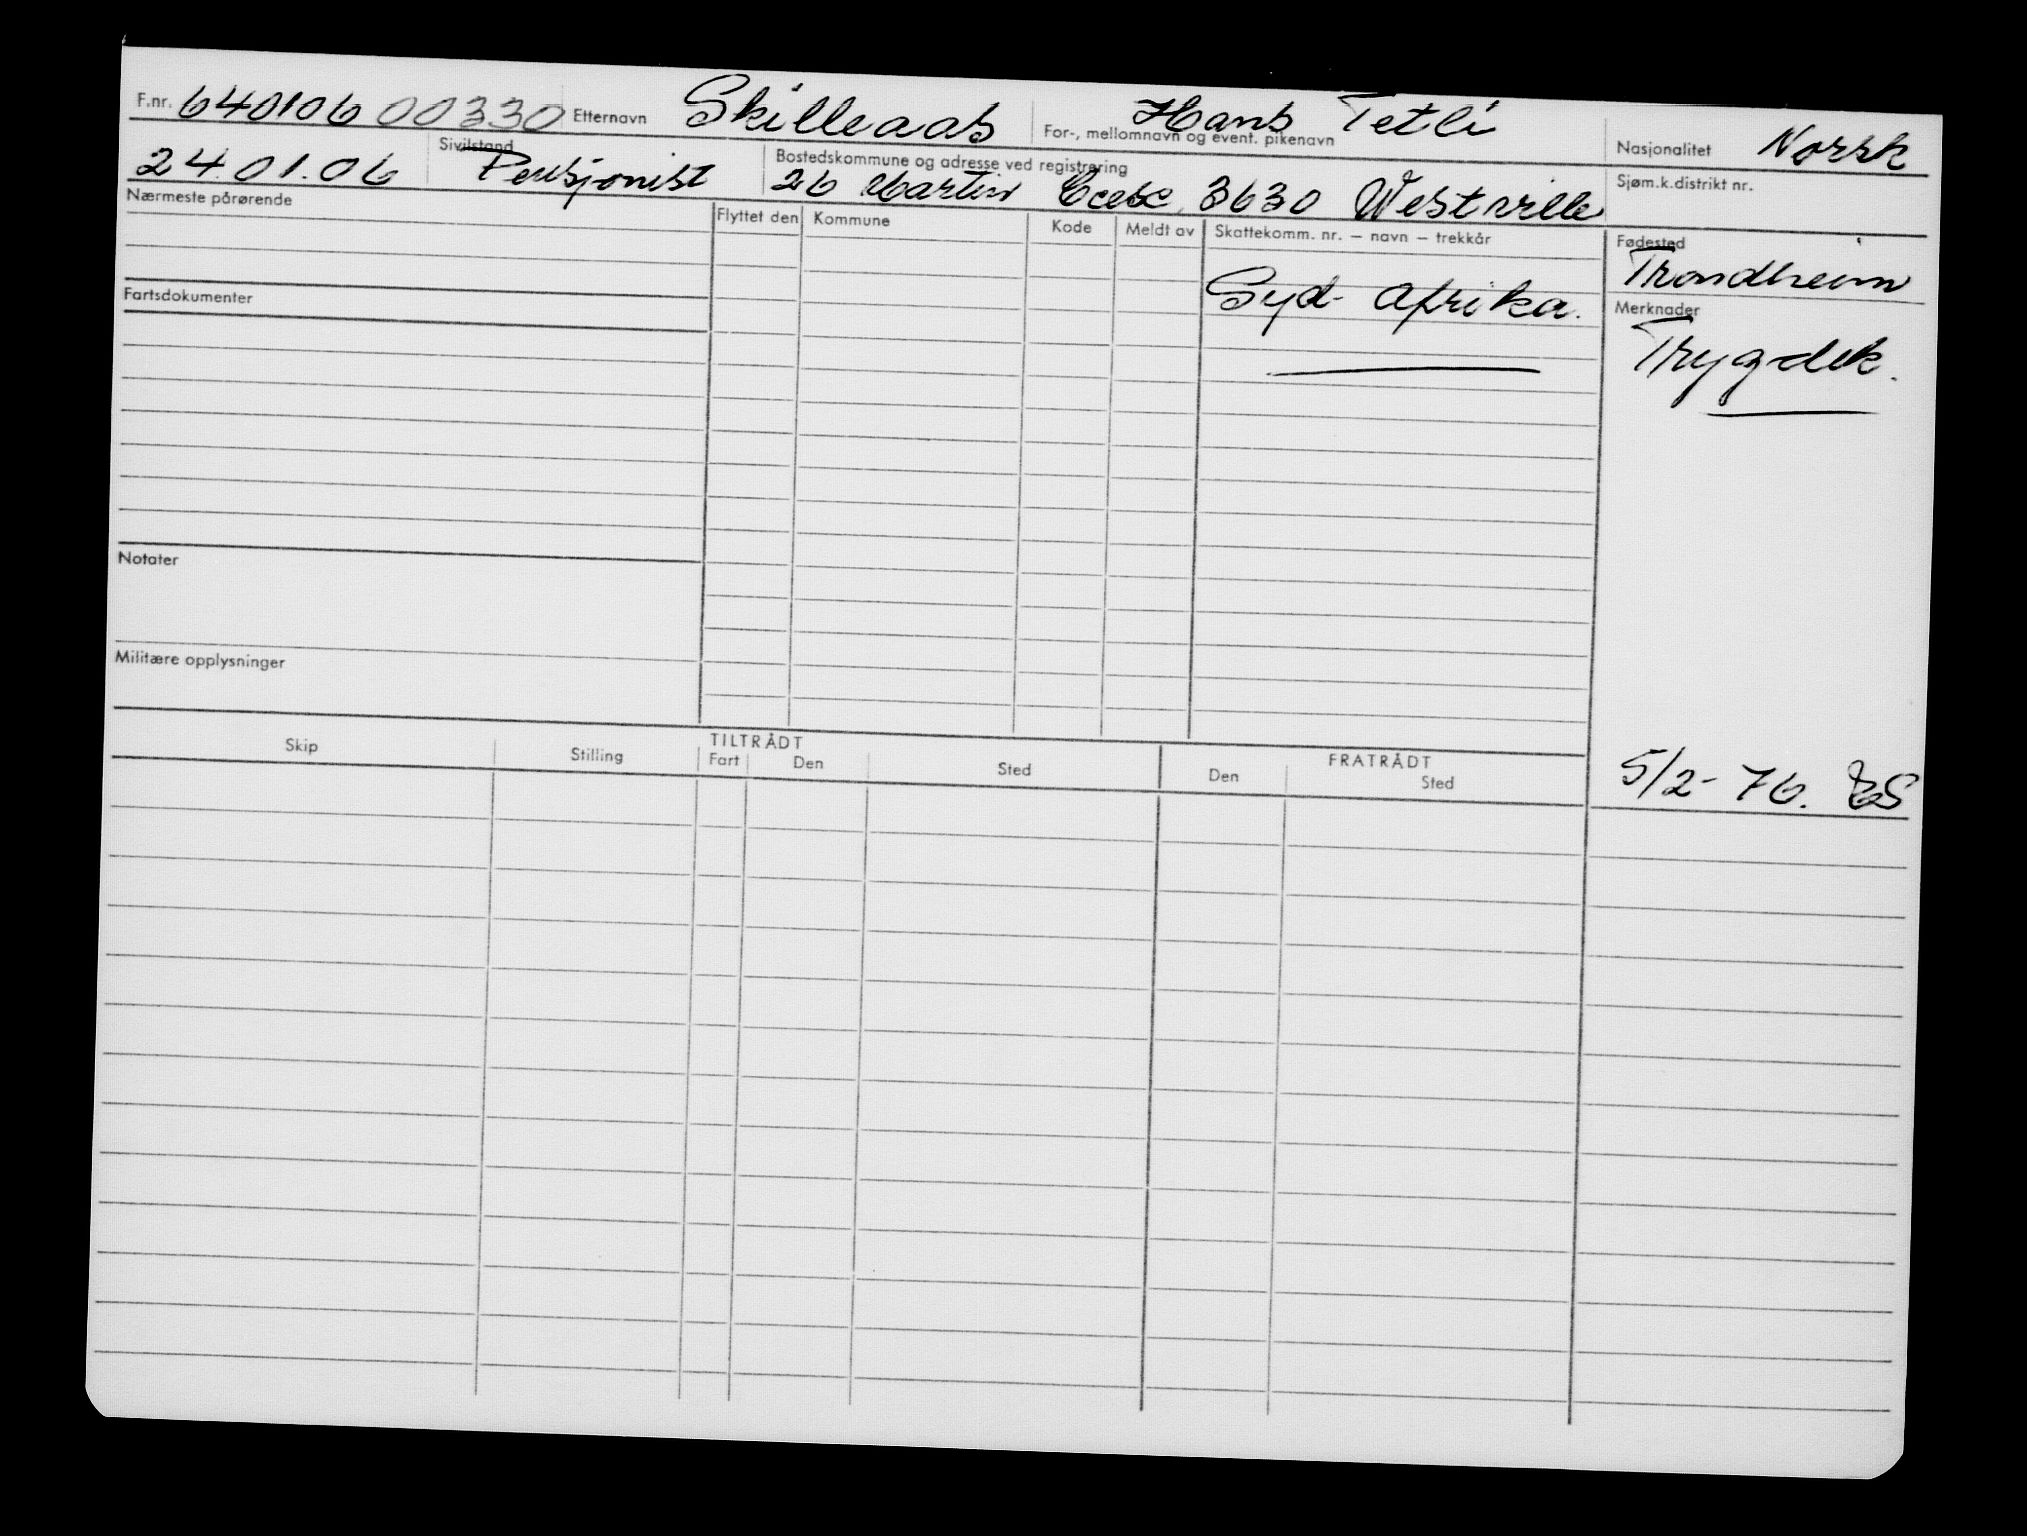 F.nr. 640106 00330 Etternavn Skilleaas For-, mellomnavn og event. pikenavn Hans Tetli Nasjonalitet Norsk
24.01.06 Sivilstand Pensjonist Bostedskommune og adresse ved registrering 26 Martin 3630 Westville Sjøm.k.distrikt nr.
Nærmeste pårørende Flyttet den Kommune Kode Meldt av Skattekomm. nr. – navn – trekkår Fødested
Syd-Afrika. Trondheim
Fartsdokumenter Merknader
Trygdek.
Notater
Militære opplysninger
TILTRÅDT FRATRÅDT
Skip Stilling Fart Den Sted Den Sted
5/2-76.